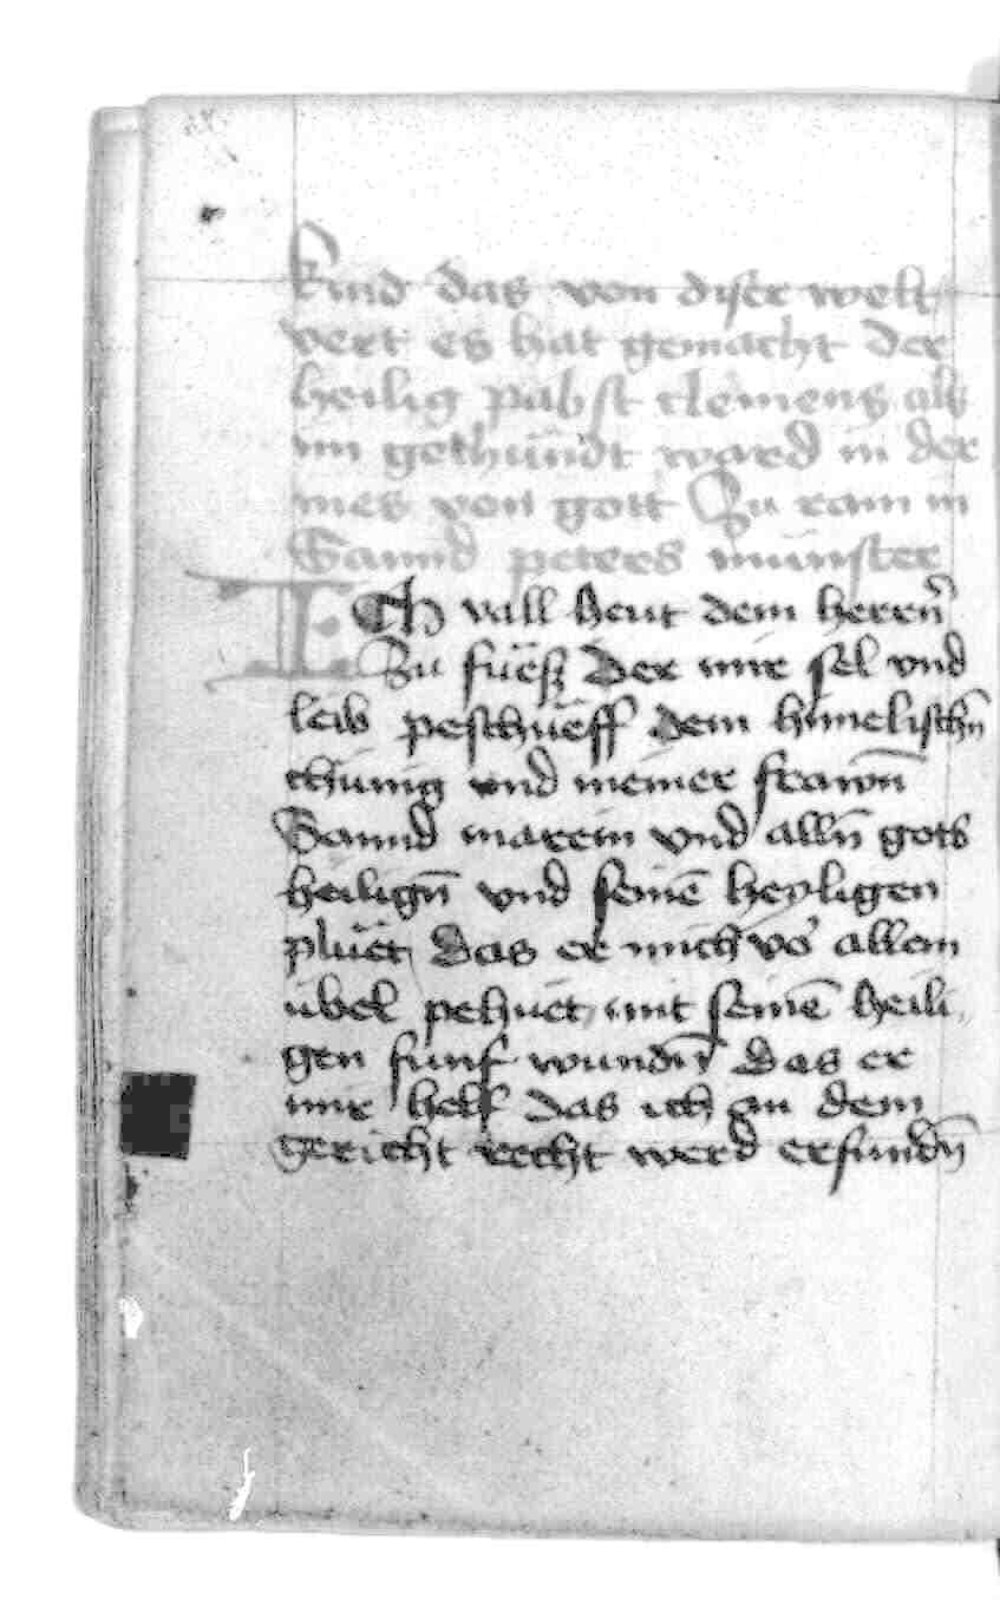 kind das von diser welt
vert es hat gemacht der
heilig pabst clemens als
im gethündt ward in der
mes von gott Zu rom in
Sannd peters münster
ICh vall heut dem herrn̄
Zu füeſʒ der mir ſel vnd
leib peſchüeff dem himeliſchn̄
chünig vnd meiner frawn̄
Sannd marein vnd alln̄ gots
heilign̄ vnd ſeinē heyligen
plüet das er mich vo᷑ allem
übel pehüet mit ſeinē heili
gen fünf wundn̄ das er
mir helf das ich an dem
gericht recht werd erfundn̄